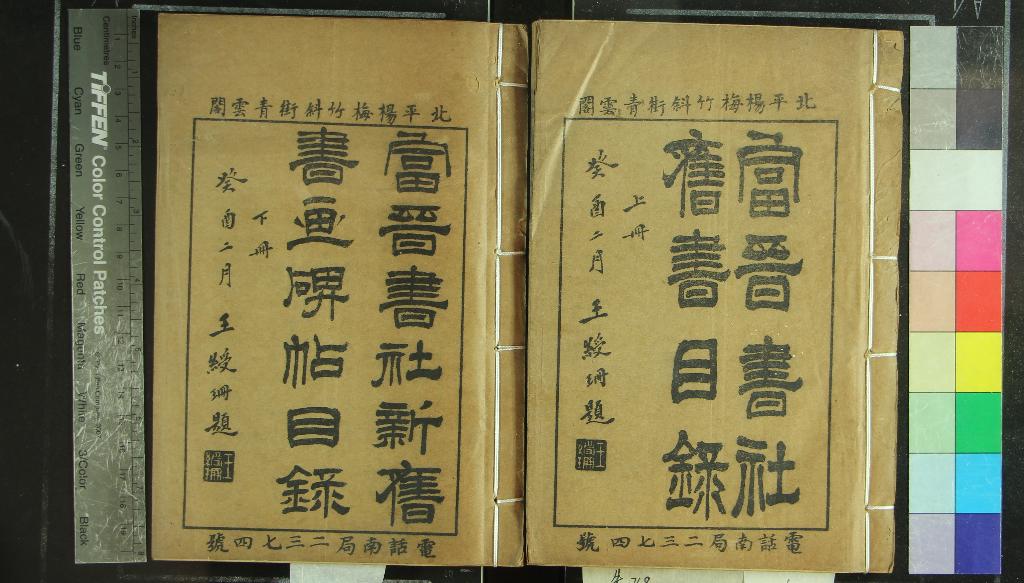 北平楊梅竹斜街青雲閣
富晉書社
舊書目錄
上冊
癸酉二月 王綬珊題
電話南局二三七四號
北平楊梅竹斜街青雲閣
富晉書社新舊
書画碑帖目錄
下冊
癸酉二月 王綬珊題
電話南局二三七四號
Inches
Centimetres
TIFFEN Color Control Patches
Blue Cyan Green Yellow Red Magenta White 3/Color Black